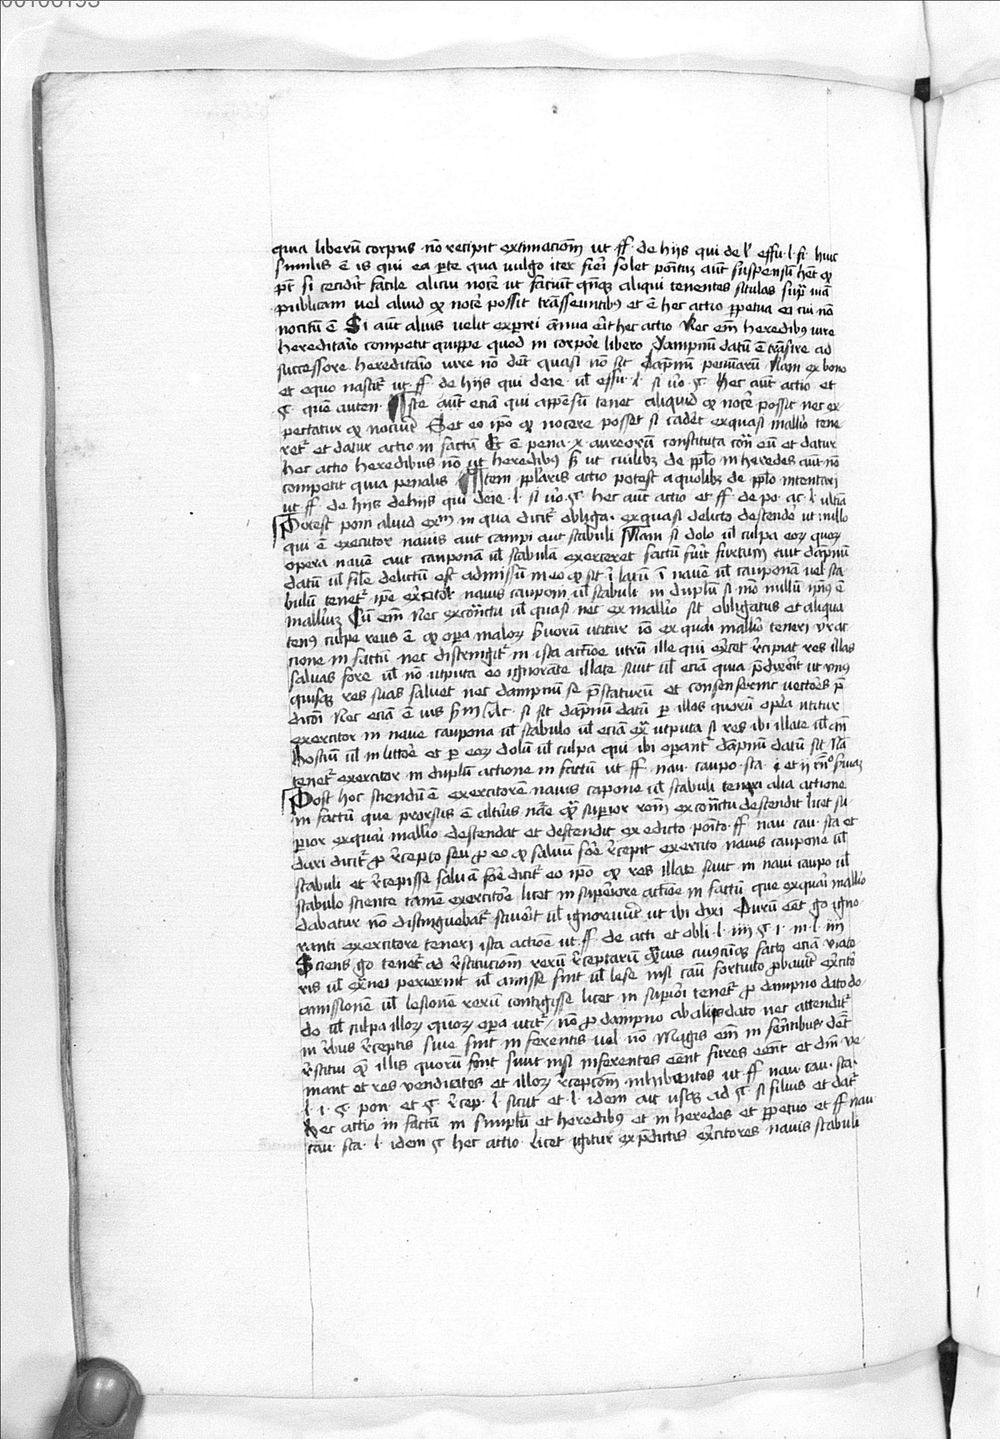 00108195
quia liberū corpus nō recipit extimacionē ut ff de hijs qui de l' effu l si huic
similis ē is qui ea pte qua uulgo iter fieri solet positū aut suspensū het qd
pt si cecidit facile alicui nocē ut faciūt qnqꝫ aliqui tenentes situlas supr uiā
publicam uel aliud qd nocē possit trāseuntibꝰ et ē hec actio ppetua ei cui nō
nocitū ē Si aut alius uelit expiri ānua erit hec actio Nec em heredibꝰ iure
hereditaio competit quippe quod in corpore libero dampnū datū ē trāsire ad
successore hereditaio iure nō det quasi nō sit dapnū pecuniarū Nam ex bono
et equo nascit ut ff de hijs qui deie ul effu l si uo § hec aut actio et
§ que autem Iste aut eciā qui appensū tenet aliquid qd nocē possit nec ex
pectatur qd nocuit Set eo ipo qd nocere posset si cadet exquasi mallio tene
ret et datur actio in factū Et ē pena x aureorū constituta con eu et datur
hec actio heredibus nō ut heredibꝰ s ut cuilibꝫ de pplo in heredes aut nō
competit quia penalis Item pplaris actio potest a quolibꝫ de pplo intentari
ut ff de hijs dehijs qui deie l si uo § hec aut actio et ff de po ac l ultia
Potest poni aliud exm in qua dicit obliga exquasi delicto descende ut nullo
qui ē executor nauis aut campi aut stabuli Nam si dolo ul culpa eoꝝ quoꝝ
opera nauē aut cauponā ul stabulū exerceret factū fuit furtum aut dapnū
datū ul sile delictū est admissū in eo qd sit i latū i nauē ul cauponā uel sta
bulū tenet ipe exercitor nauis cauponi ul stabuli in duplū si mo nullū ipius ē
malliuꝫ Cū em nec excontctu ul quasi nec ex mallio sit obligatus et aliqua
tenꝰ culpe reus ē qd opa maloꝝ suorum utitur io ex quasi mallio teneri vr ac
cione in factū nec distringit in ista actioe utrū ille qui excet recipiat res illas
saluas fore ul nō utputa eo ignorāte illate sunt ul eciā quia pdixerit ut vnus
quisqꝫ res suas saluet nec dampnū se pstaturū et consenserint vectores p
dicōi Nec eciā ē uis si sit dapnū datū p illos quorū opera utitur
exercitor in naue caupona ul stabulo ul eciā ex utputa si res ibi illate ul an
hostiū ul in littore et p eoꝝ dolū ul culpa qui ibi operant dapnū datū sit Nā
tenet exercitor in duplū actione in factū ut ff nau caupo sta
Post hoc sciendū ē exercitorē nauis capone ul stabuli teneri alia actione
in factū que prorsus ē alterius nature qz superior rem excontctu descendit licet su
perior exquasi mallio descendat et descendit ex edicto posito ff nau cau sta et
dari dicit p recepto seu p eo qd saluū fore recepit exercito nauis caupone ul
stabuli et recepisse saluā fore dicit eo ipo qd res illate sunt in naui caupo ul
stabulo sciente tamē exercitore licet in superiore actioe in factū que exquasi mallio
dabatur nō distinguebat sciuerit ul ignorauit ut ibi dixi Durū eet go igno
ranti exercitore teneri ista actioe ut ff de acti et obli l iiii § i in l iiii
Sciens go tenet ad restitucionē rerū receptarū quis cuiuscūqꝫ facto eciā viato
ris ul extnei perierint ul amisse sint ul lese nisi casu fortuito pbauit exercito
amissionē ul lesionē rerū contigisse licet in supiori tenet p dampno dato do
lo ul culpa illoꝝ quoꝝ opa utit non p dampno ab alijs dato nec attendit
in rebus receptis siue sint in ferentis uel nō Magis em in serētibus det
restitui qz illis quorū sunt nisi inferentes eent fures eent et dnī ve
niant et res vendicātes et illoꝝ recepcōm inhibentes ut ff nau cau sta
l i § pon et § recep l sicut et l idem ait usqꝫ ad § si filius et dat
hec actio in factū in simplū et heredibꝰ et in heredes et ppetuo et ff nau
cau sta l idem § hec actio licet igitur ex pdictis exercitores nauis stabuli